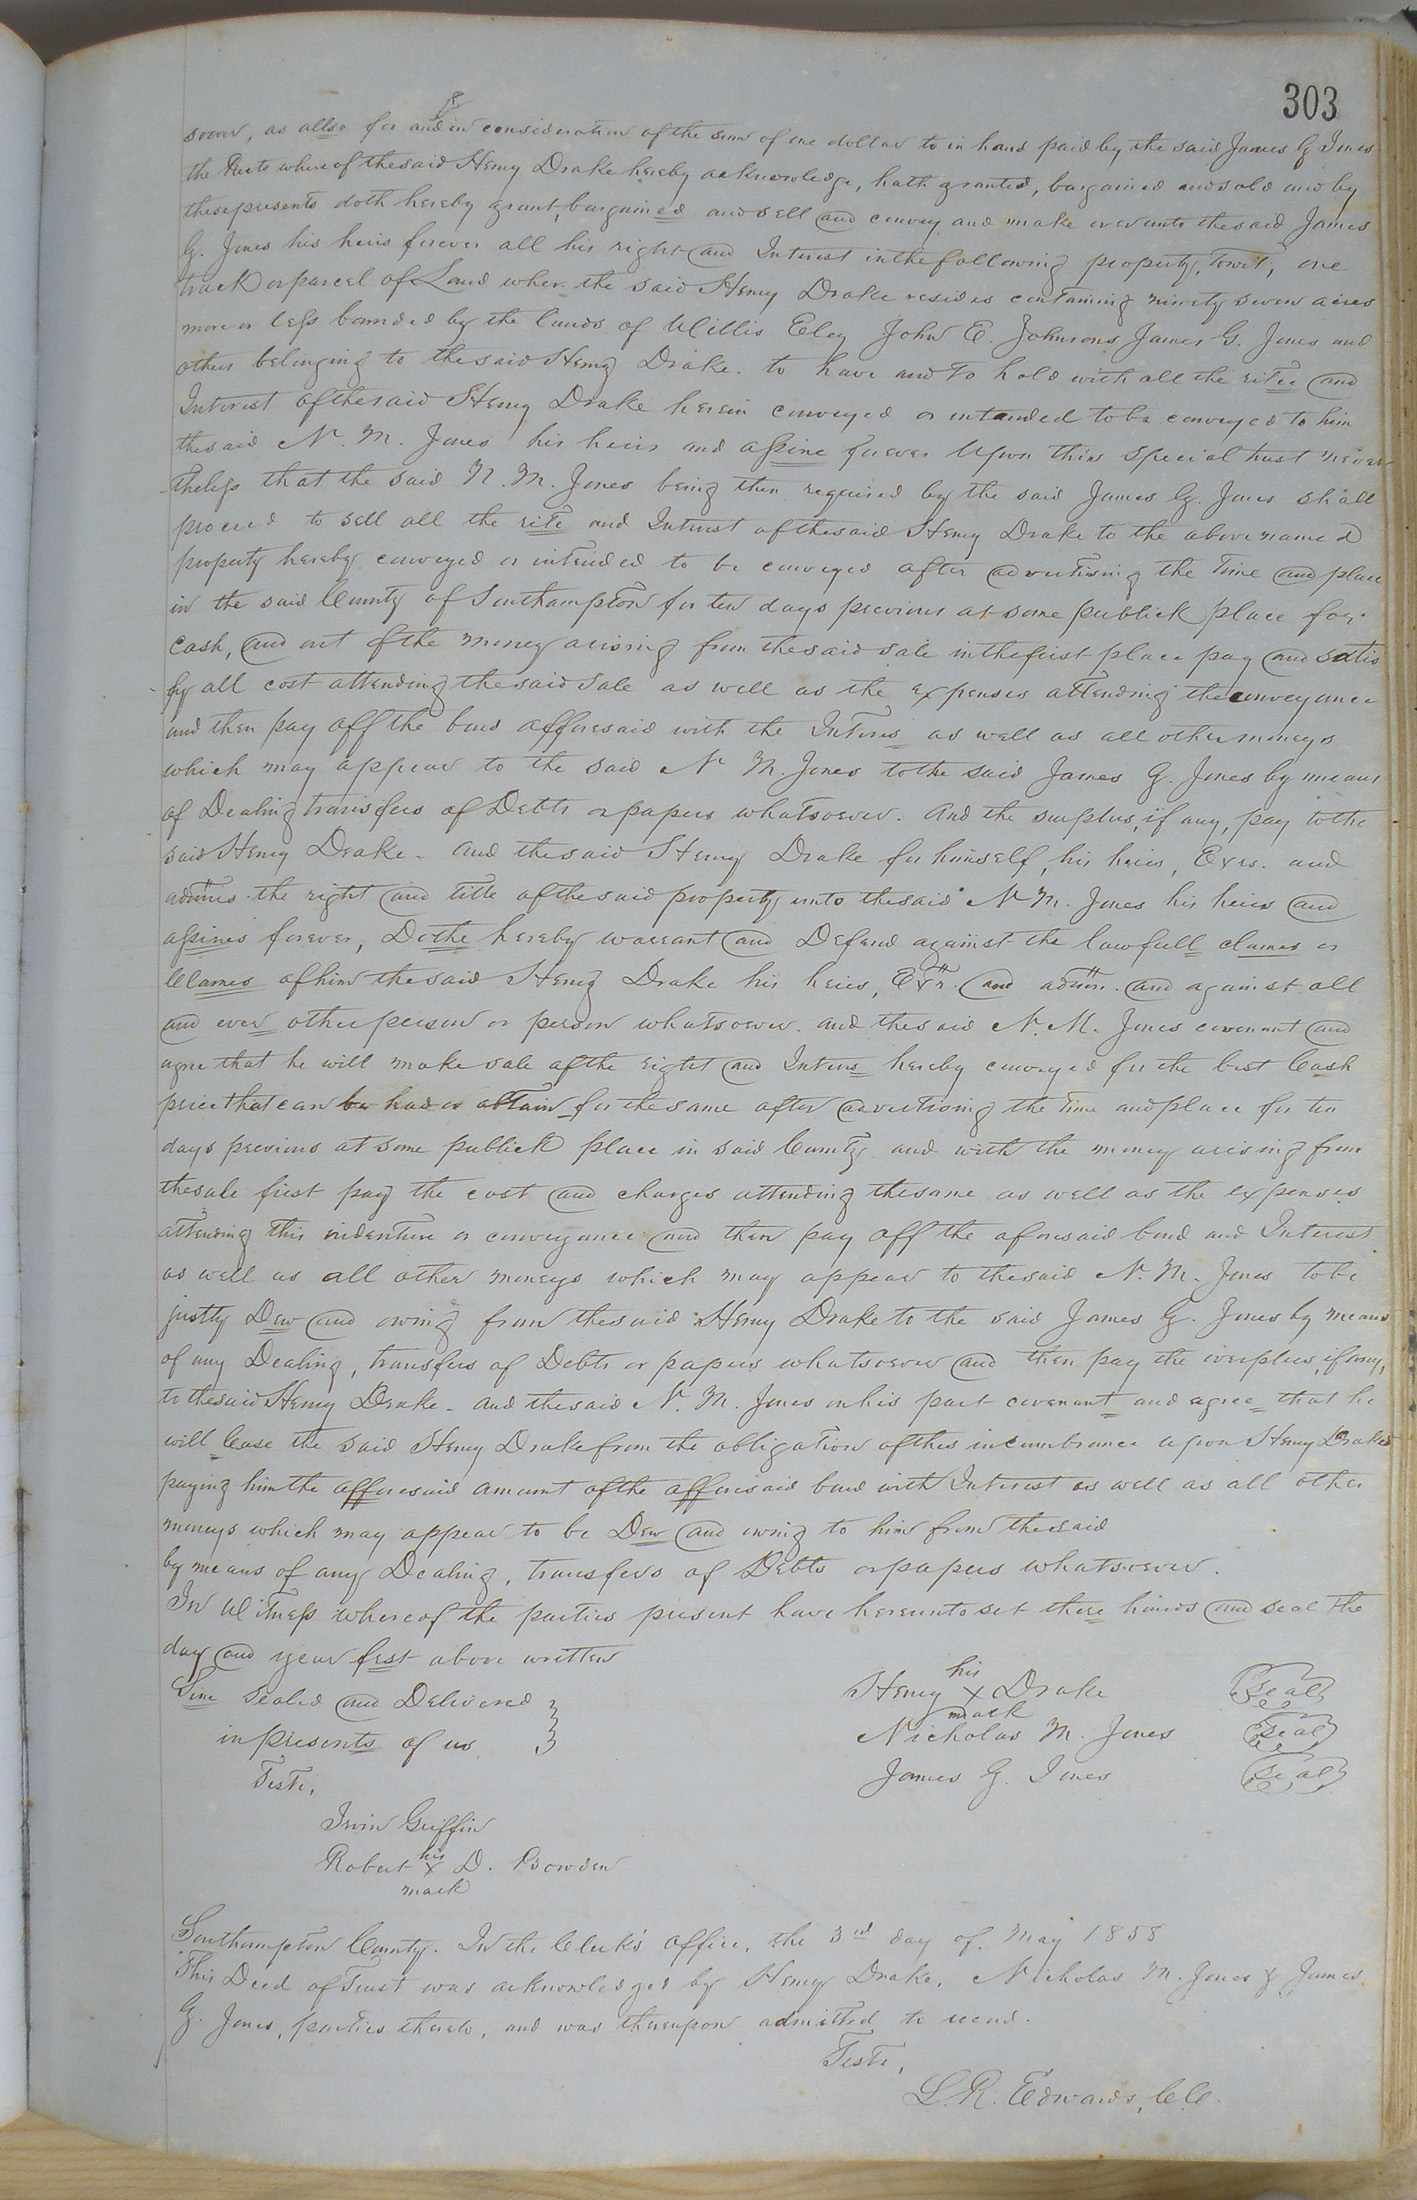 303
soever, as allso for and in consideration of the sum of one dollar to in hand paid by the said James G Jones
the Reets whereof the said Henry Drake hereby acknowledge, hath granted, bargained and sold and by
these presents doth hereby grant, bargained and sell and convey and make over unto the said James
G. Jones his heirs forever all his right and Interest in the following property, towit, one
track or parcel of Land wher the said Henry Drake resides containing ninety seven acres
more or less bounded by the lands of Willis Eley John E. Johnsons James G. Jones and
others belinging to the said Henry Drake. to have and to hold with all the rite and
Interest of the said Henry Drake herein conveyed or intanded to be conveyed to him
the said N. M. Jones his heirs and assine forever Upon this special trust never
theless that the said N. M. Jones being then required by the said James G. Jones shall
proceed to sell all the rite and Interest of the said Henry Drake to the above named
property hereby conveyed or intended to be conveyed after advertising the time and place
in the said County of Southampton for ten days previous at some publick place for
Cash, and out of the money arising from the said sale in the first place pay and satis
fy all cost attending the said sale as well as the expenses attending the conveyance
and then pay off the bond afforesaid with the Interes as well as all other moneys
which may appear to the said N M. Jones to the said James G. Jones by means
of Dealing transfers of Debts or papers whatsoever. And the surplus, if any, pay to the
said Henry Drake. And the said Henry Drake for himself, his heirs, Exrs. and
admrs. the right and title of the said property unto the said N M. Jones his heirs and
assines forever, Dothe hereby warrant and Defend against the lawfull clames or
Clames of him the said Henry Drake his heirs, Exr. and admr. and against all
and ever other person or person whatsoever. and the said N. M. Jones covenant and
agree that he will make sale of the right and Interes hereby conveyed for the best Cash
price that can be had or obtain for the same after advertising the time and place for ten
days previous at some publick place in said County and with the money arising from
the sale first pay the cost and charges attending the same as well as the expenses
attending this indenture or conveyance and then pay off the aforesaid bond and Interest
as well as all other moneys which may appear to the said N. M. Jones to be
justly Dew and owing from the said Henry Drake to the said James G. Jones by means
of any Dealing, transfers of Debts or papers whatsoever and then pay the overplus, if any,
to the said Henry Drake. And the said N. M. Jones on his part covenant and agree that he
will lease the said Henry Drake from the obligation of this incumbrance upon Henry Drakes
paying him the afforesaid amount of the afforesaid bond with Interest as well as all other
moneys which may appear to be Dew and owing to him from the said
by means of any Dealing, transfers of Debts or papers whatsoever.
In Witness whereof the parties present have hereunto set there hands and seal the
day and year ferst above written
Sine Sealed and Delivered
in presents of us
Teste,
his
Henry X Drake Seal
mark
Nicholas M. Jones Seal
James G. Jones Seal
Irvin Griffin
his
Robert X D. Bowden
mark
Southampton County. In the Clerk's office, the 3rd day of May 1858
This Deed of Trust was acknowledged by Henry Drake, Nicholas M. Jones & James
G. Jones, parties thereto, and was thereupon admitted to record.
Teste,
L. R. Edwards, C.C.